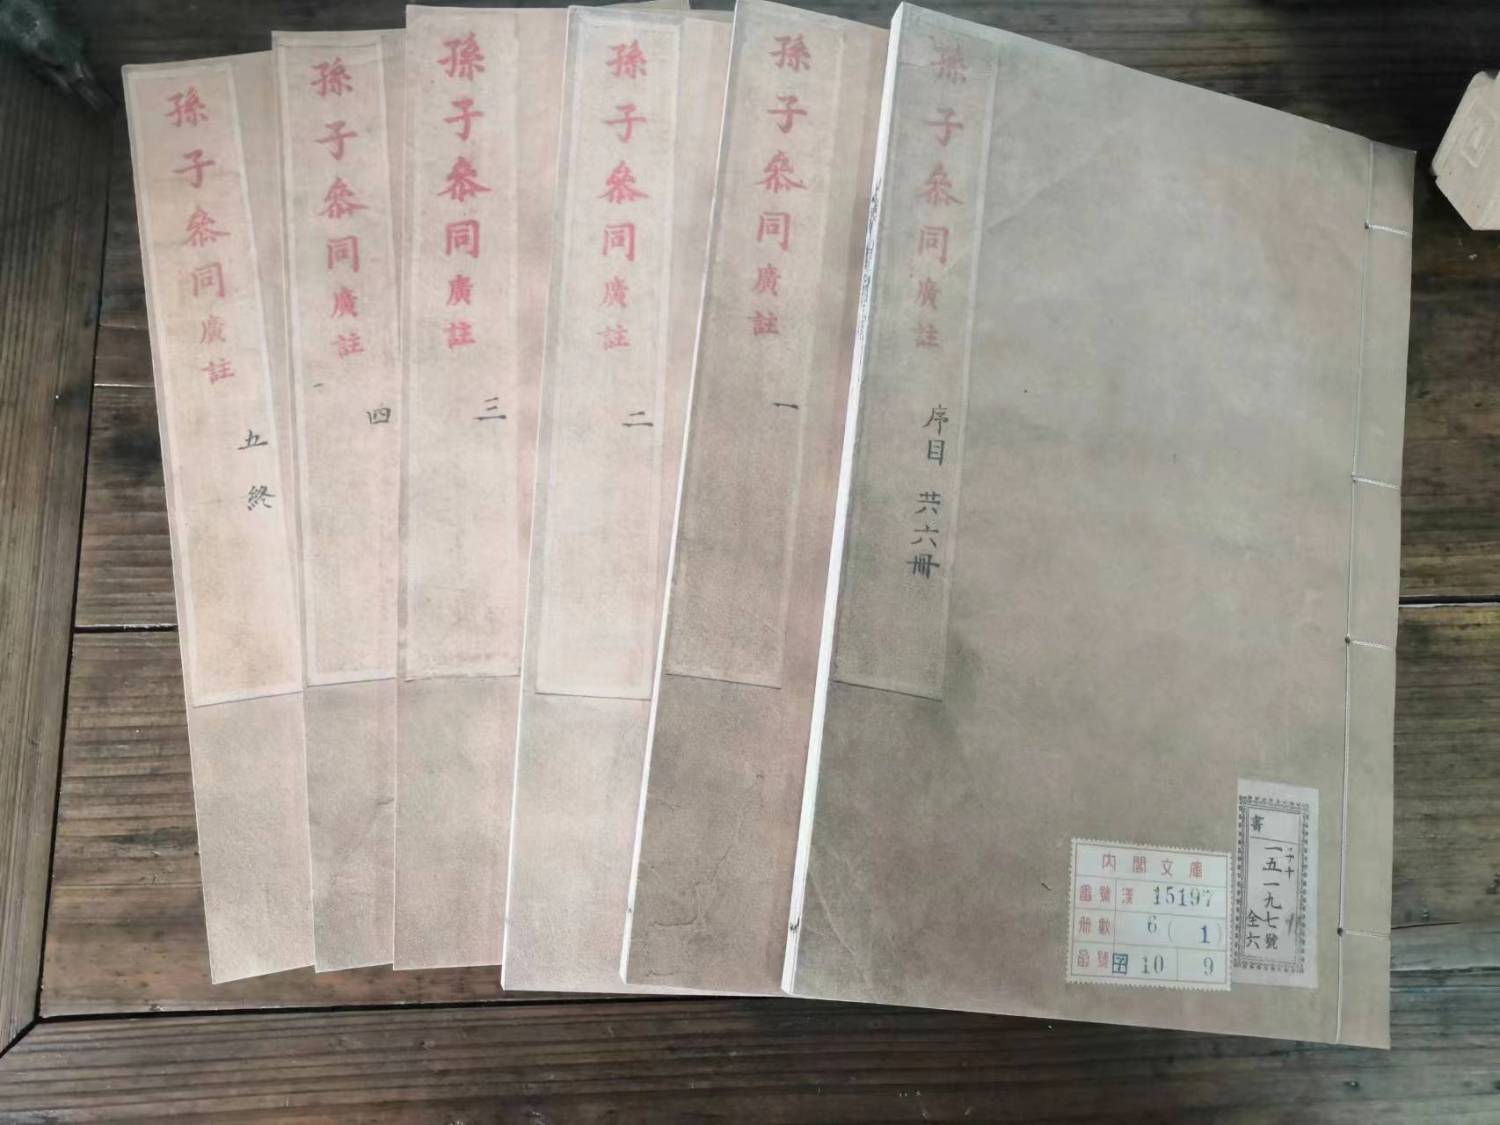 孫子参同廣註
序目 共六冊
孫子参同廣註
一
孫子参同廣註
二
孫子参同廣註
三
孫子参同廣註
四
孫子参同廣註
五 終
內閣文庫
番號 漢 15197
冊數 6(1)
函號 子 10 9
書
一五一九七號
全六